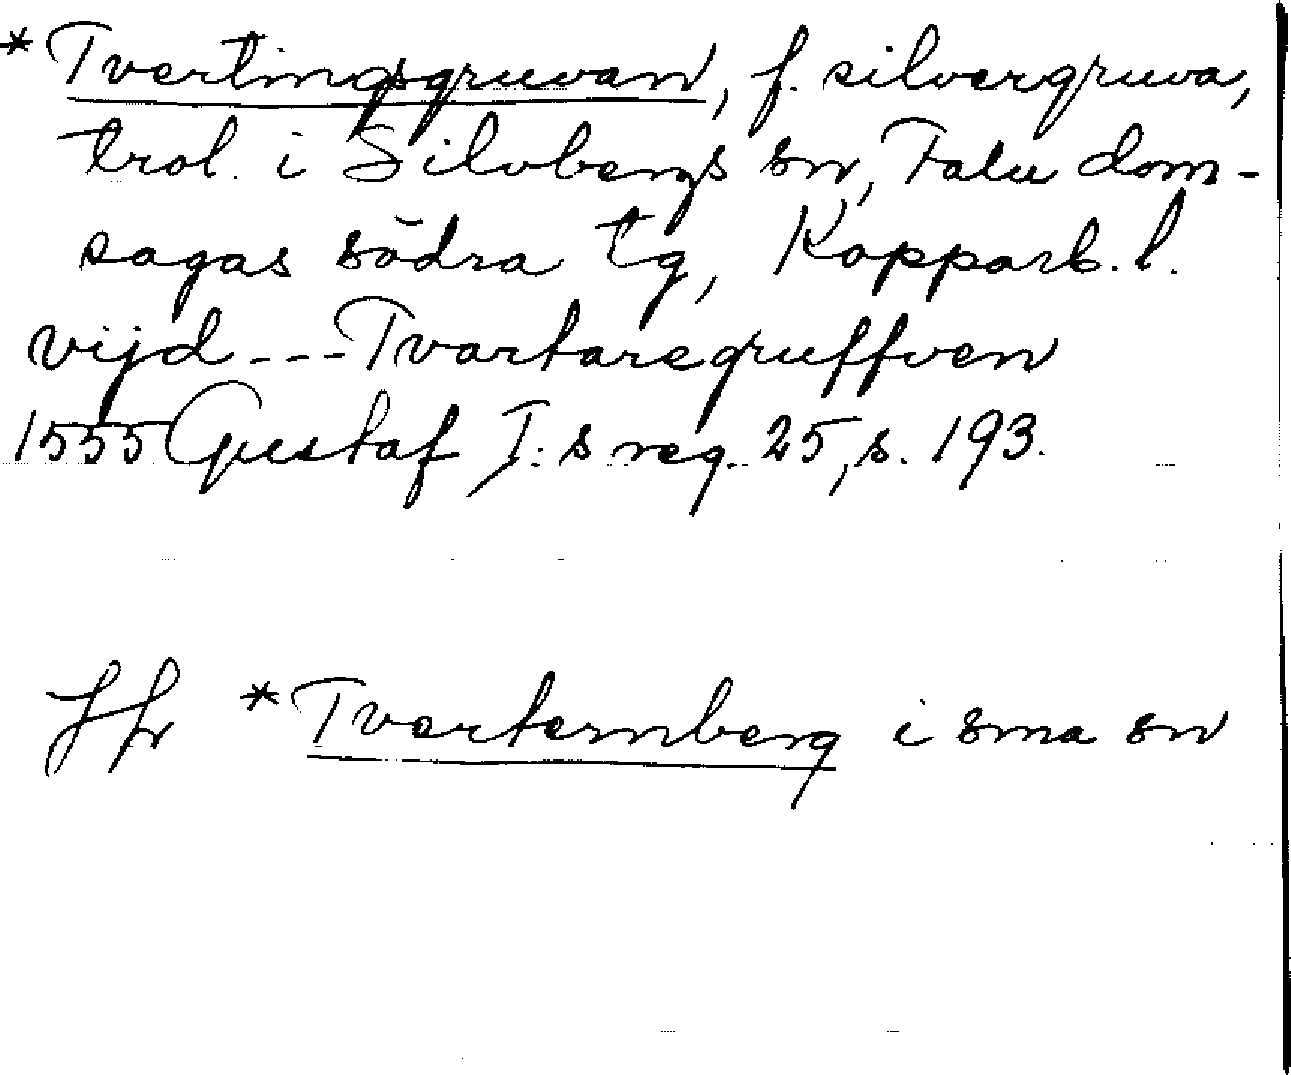 *Tvertingsgruvan, f. silvergruva,
trol. i Silvbergs sn, Falu dom-
sagas södra tg, Kopparb. l.
vijd --- Tvartaregruffven
1555 Gustaf I:s reg. 25, s. 193.
Jfr *Tverternberg i sma sn